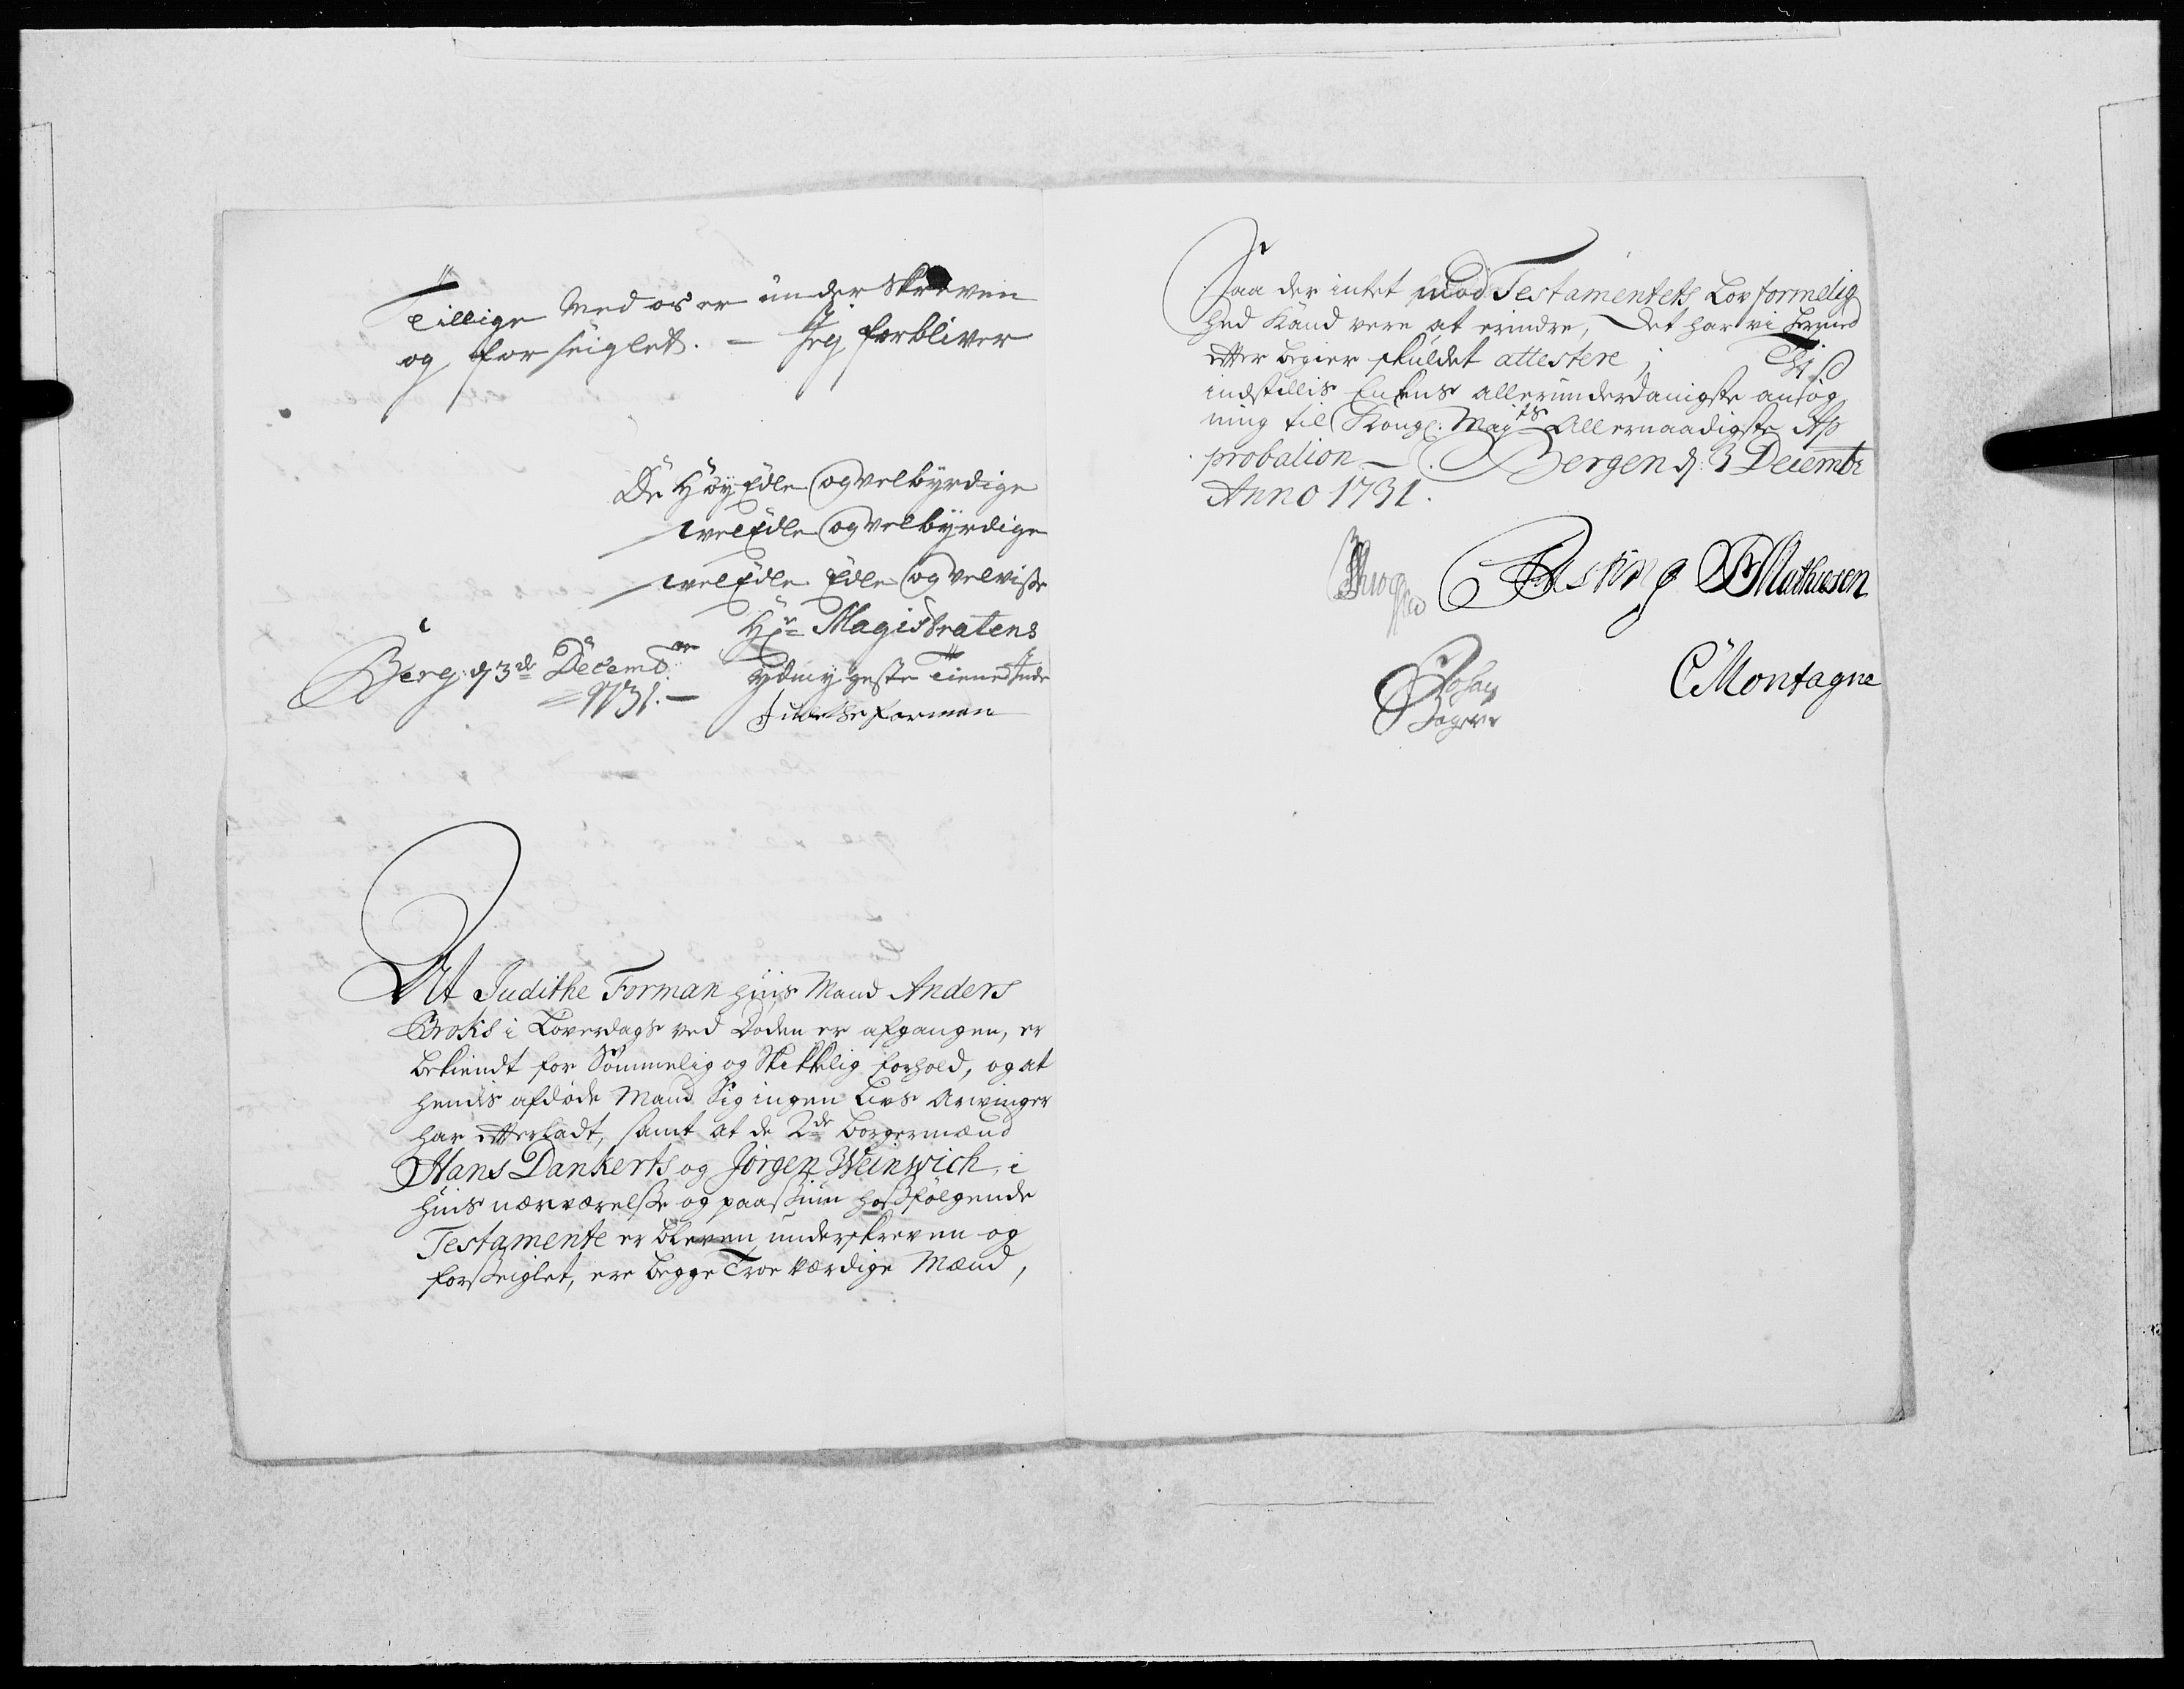 Tillige med os er underskreven
og forseiglet. – Jeg forbliver
De HøyEdle og velbyrdige
welEdle og velbyrdige
welEdle Edle og velvise
Hr Magistratens
Berg: d 3de Decembr
1731. –
ydmygeste Tienerinde
Judithe Forman
At Judithe Forman hvis Mand Anders
Broks i Løverdags ved Døden er afgangen, er
bekiendt for Sømmelig og Skikkelig forhold, og at
hendis afdøde Mand Sig ingen Livs Arvinger
har etterladt, samt at de 2de borgermænd
Hans Dankerts og Jørgen Weinwich, i
hvis nærværelse og paasiun hosfølgende
Testamente er bleven underskreven og
forseiglet, ere begge Troeværdige Mænd,
Saa der intet mod Testamentets Lovformelig
hed kand vere at erindre, Det har vi herved
etter begier skuldet attestere;
indstillis Enkens allerunderdanigste ansøg
ning til Kongl: Mayts Allernaadigste Ap
probation – Bergen d: 3 Decembr
Anno 1731.
Fasting Mathiesen
CMontagne